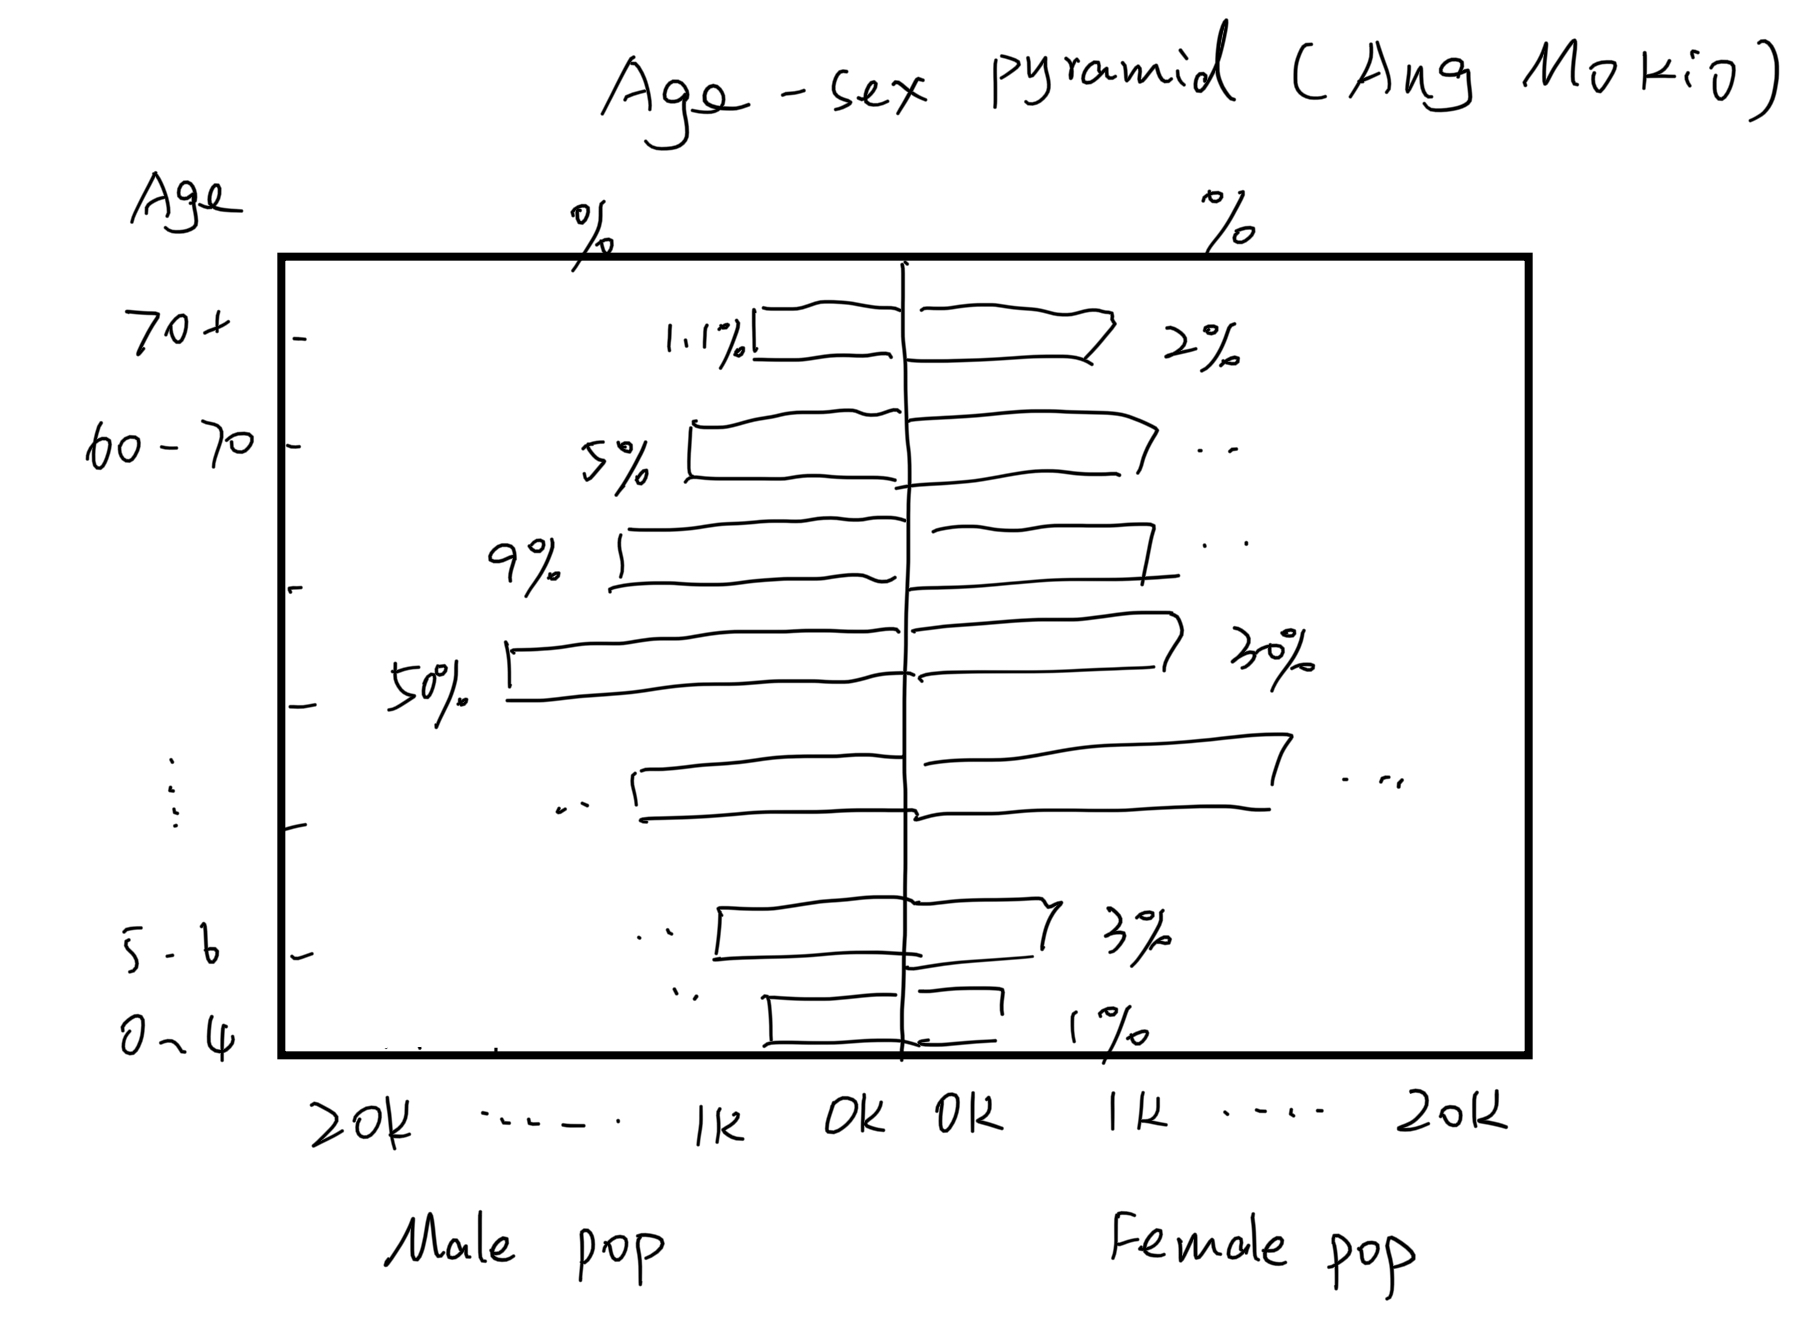 Age-sex pyramid (Ang MoKio)
Age
% %
70+ 1.1% 2%
60-70 5% ..
9% ..
50% 30%
.. ...
5-6 .. 3%
0~4 .. 1%
20K ...... 1K 0K 0K 1K ..... 20K
Male pop Female pop